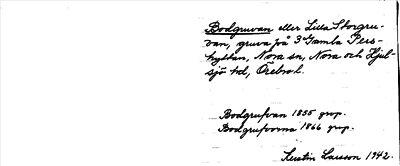 Bodgruvan eller Lilla Storgru-
van, gruva på 3 Gamla Pers-
hyttan, Nora sn, Nora och Hjul-
sjö td, Örebro l.
Bodgrufvan 1855 grp.
Bodgrufvorna 1866 grp.
Kerstin Larsson 1942.